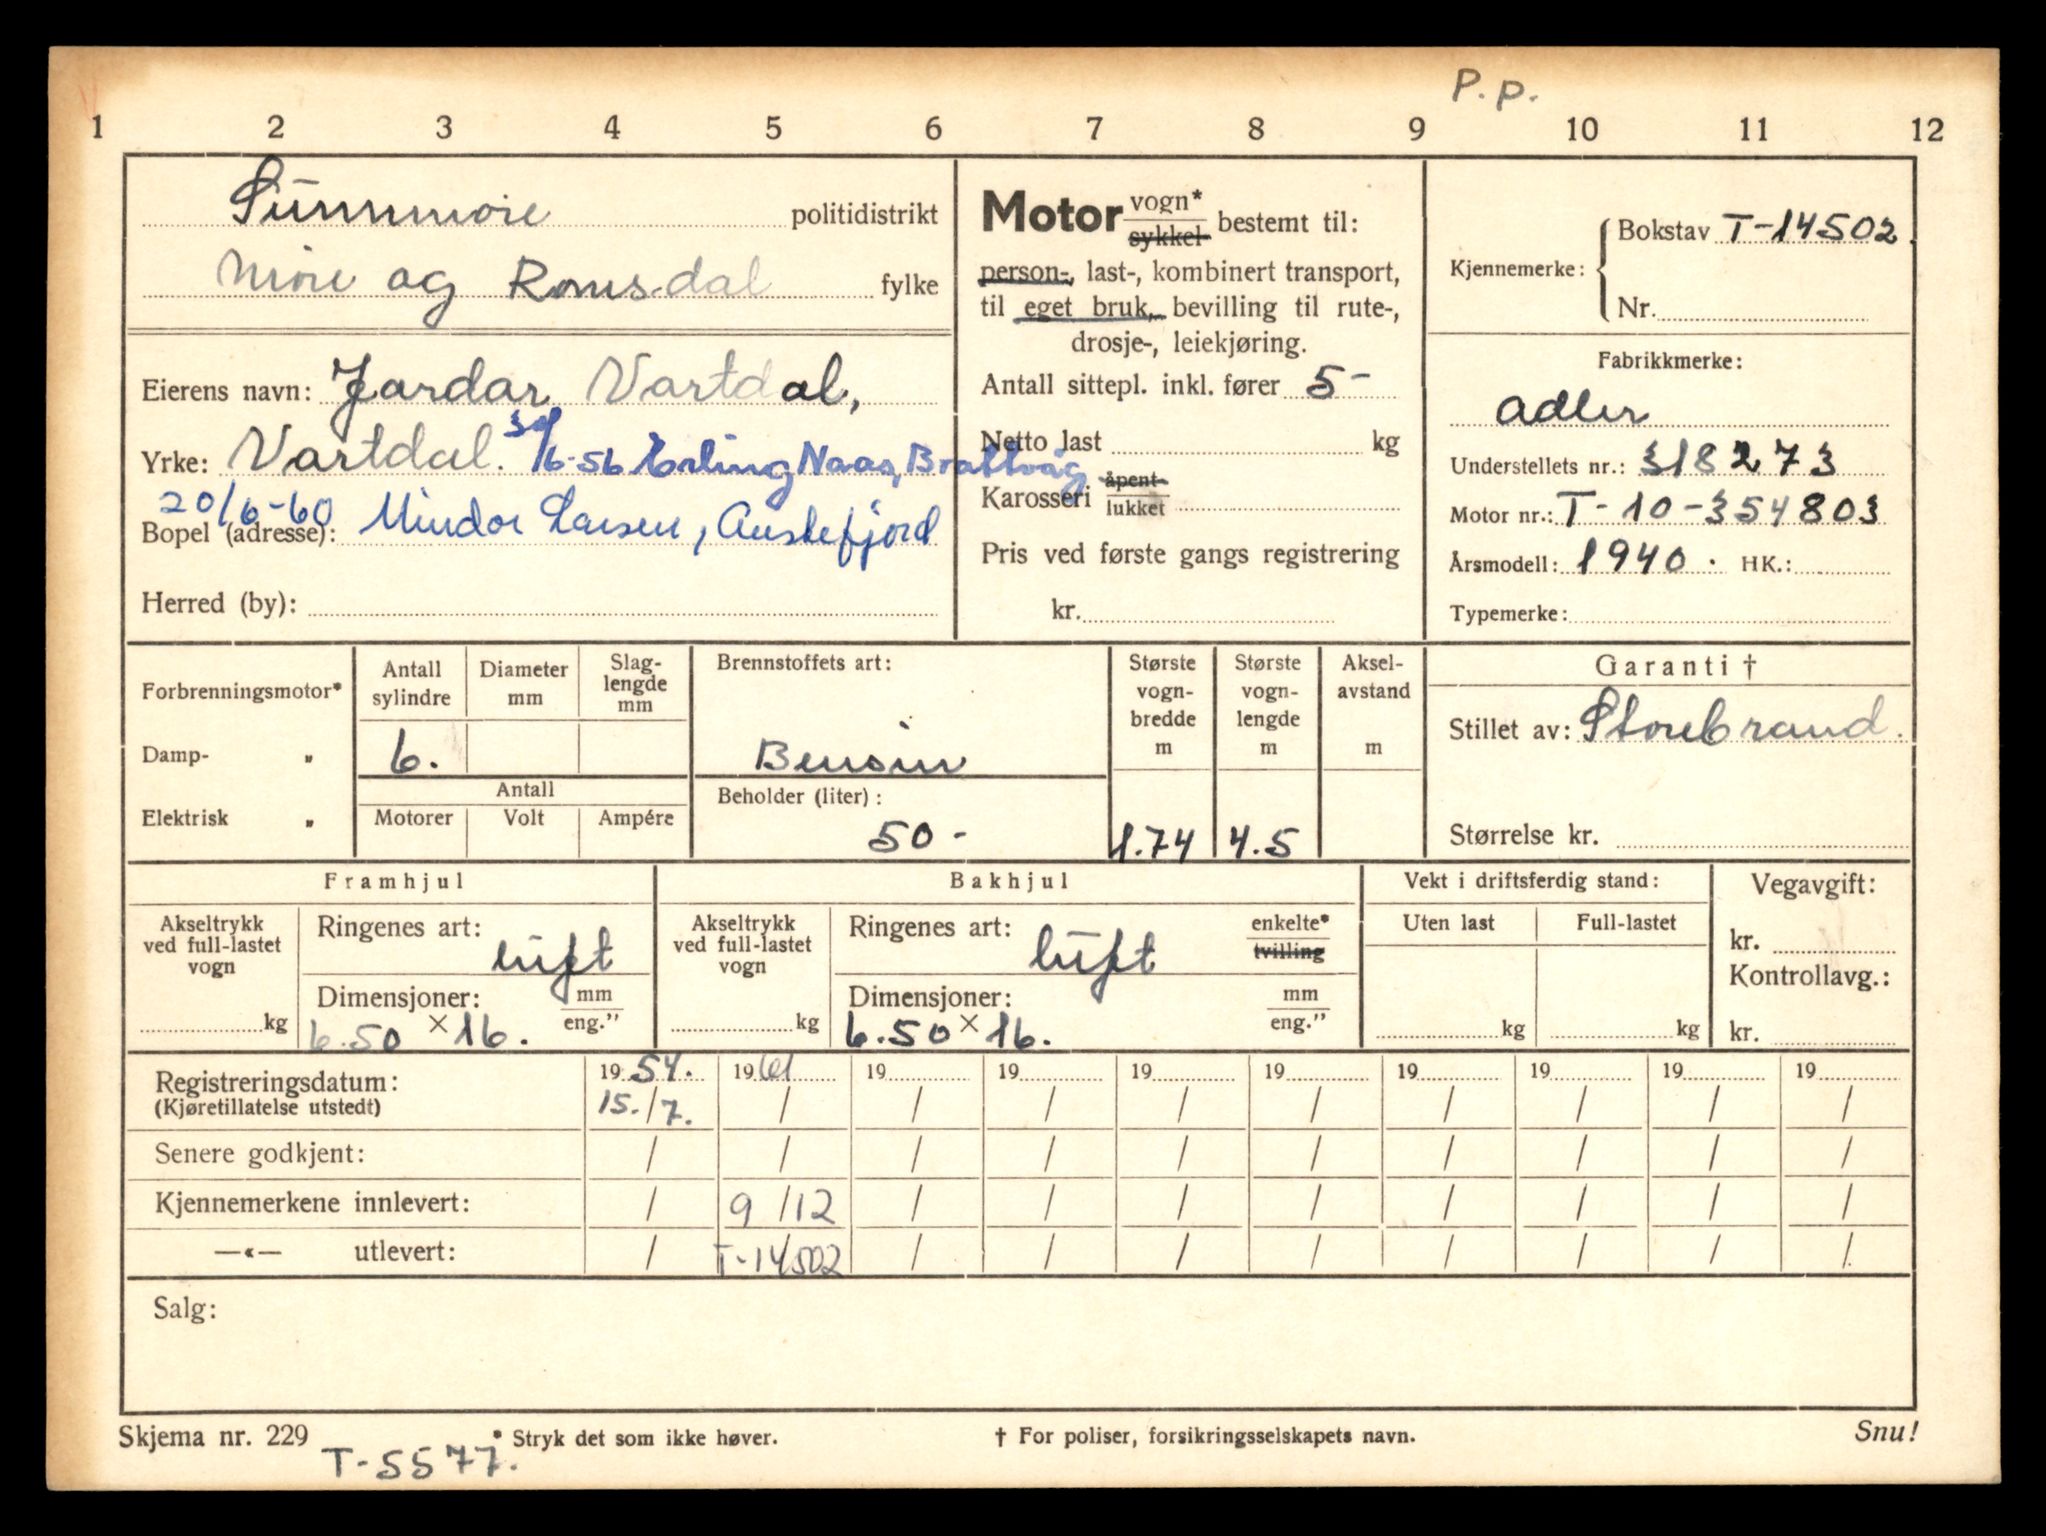 P.P.
1 2 3 4 5 6 7 8 9 10 11 12
Sunnmøre politidistrikt
Møre og Romsdal fylke
Eierens navn: Jardar Vartdal,
Yrke: Vartdal. 30/6-56 Erling Naas, Brattvåg
20/6-60
Bopel (adresse): Mindor Larsen, Austefjord
Herred (by):
Motor vogn* sykkel bestemt til:
person-, last-, kombinert transport,
til eget bruk, bevilling til rute-,
drosje-, leiekjøring.
Antall sittepl. inkl. fører 5-
Netto last kg
Karosseri åpent- lukket
Pris ved første gangs registrering
kr.
Kjennemerke: Bokstav T-14502.
Nr.
Fabrikkmerke:
Adler
Understellets nr.: 318273
Motor nr.: T-10-354803
Årsmodell: 1940. HK.:
Typemerke:
Forbrenningsmotor*
Damp- „
Elektrisk „
Antall sylindre
Diameter mm
Slag-
lengde
mm
6.
Antall
Motorer Volt Ampére
Brennstoffets art:
Bensin
Beholder (liter):
50-
Største
vogn-
bredde
m
1.74
Største
vogn-
lengde
m
4.5
Aksel-
avstand
m
Garanti †
Stillet av: Storebrand.
Størrelse kr.
Framhjul
Akseltrykk
ved full-lastet
vogn
kg
Ringenes art:
luft
Dimensjoner: mm eng."
6.50 × 16.
Bakhjul
Akseltrykk
ved full-lastet
vogn
kg
Ringenes art: enkelte* tvilling
luft
Dimensjoner: mm eng."
6.50 × 16.
Vekt i driftsferdig stand:
Uten last Full-lastet
kg kg
Vegavgift:
kr.
Kontrollavg.:
kr.
Registreringsdatum: 1954. 1961 19 19 19 19 19 19 19 19
(Kjøretillatelse utstedt) 15./7. / / / / / / / / /
Senere godkjent: / / / / / / / / / /
Kjennemerkene innlevert: / 9/12 / / / / / / / /
—«— utlevert: / T-14502 / / / / / / / /
Salg:
Skjema nr. 229 * Stryk det som ikke høver. † For poliser, forsikringsselskapets navn. Snu!
T-5577.